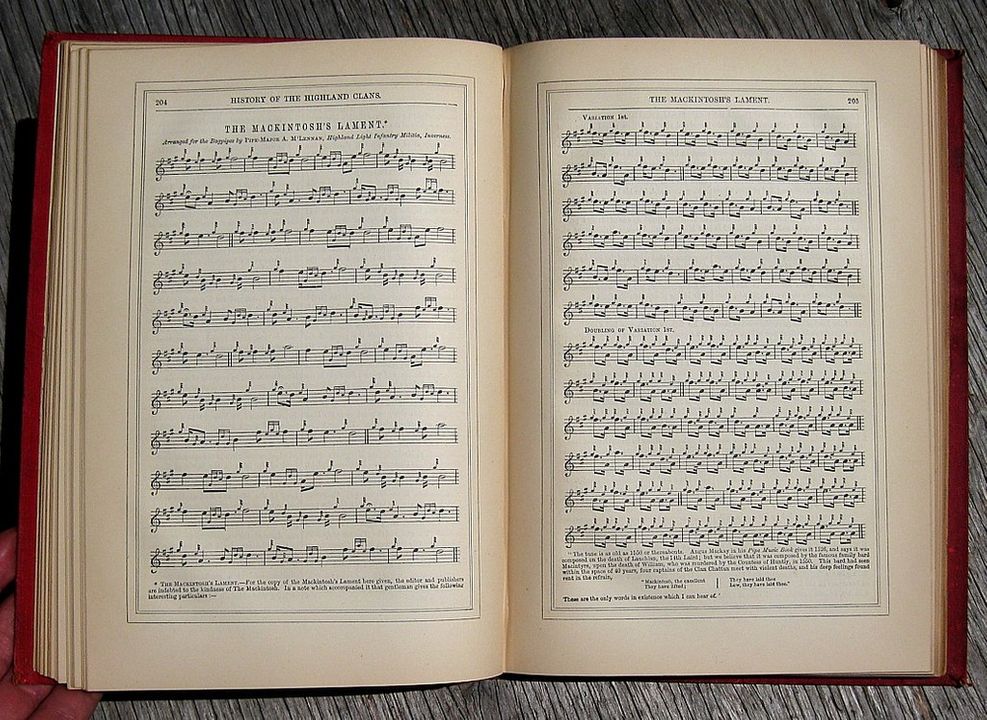 204
HISTORY OF THE HIGHLAND CLANS.
THE MACKINTOSH'S LAMENT.*
Arranged for the Bagpipes by PIPE-MAJOR A. M'LENNAN, Highland Light Infantry Militia, Inverness.
* THE MACKINTOSH'S LAMENT.—For the copy of the Mackintosh's Lament here given, the editor and publishers
are indebted to the kindness of The Mackintosh. In a note which accompanied it that gentleman gives the following
interesting particulars :—
THE MACKINTOSH'S LAMENT.
205
VARIATION 1ST.
DOUBLING OF VARIATION 1ST.
"The tune is as old as 1550 or thereabouts. Angus Mackay in his Pipe Music Book gives it 1526, and says it was
composed on the death of Lauchlan, the 14th Laird; but we believe that it was composed by the famous family bard
Macintyre, upon the death of William, who was murdered by the Countess of Huntly, in 1550. This bard had seen
within the space of 40 years, four captains of the Clan Chattan meet with violent deaths, and his deep feelings found
vent in the refrain,
"Mackintosh, the excellent
They have lifted;
They have laid thee
Low, they have laid thee."
These are the only words in existence which I can hear of."